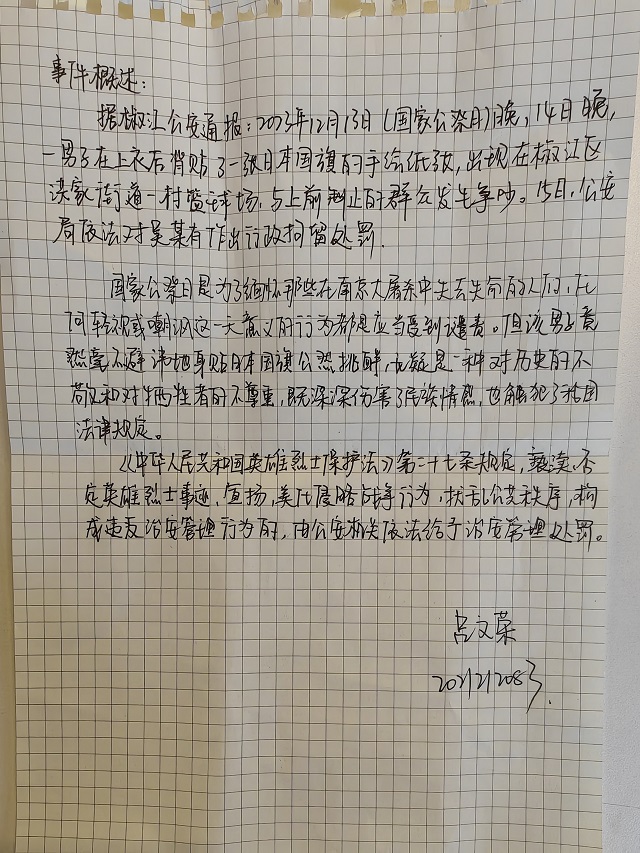 事件概述：
据椒江公安通报：2023年12月13日（国家公祭日）晚，14日晚，
一男子在上衣后背贴了一张日本国旗的手绘纸张，出现在椒江区
洪家街道一村篮球场，与上前制止的群众发生争吵。15日，公安
局依法对吴某有作出行政拘留处罚.
国家公祭日是为了缅怀那些在南京大屠杀中失去生命的人们，任
何轻视或嘲讽这一天意义的行为都是应当受到谴责。但该男子竟
然毫不避讳地身贴日本国旗公然挑衅，无疑是一种对历史的不
敬和对牺牲者的不尊重，既深深伤害了民族情感，也触犯了我国
法律规定。
《中华人民共和国英雄烈士保护法》第二十七条规定，亵渎、否
定英雄烈士事迹，宣扬，美化侵略战争行为，扰乱公共秩序，构
成违反治安管理行为的，由公安机关依法给予治安管理处罚。
吕文荣
2021212083.